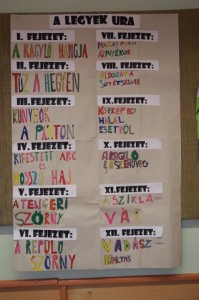 A LEGYEK URA
I. FEJEZET:
A KAGYLÓ HANGJA
II. FEJEZET:
TŰZ A HEGYEN
III. FEJEZET:
KUNYHÓK
A PARTON
IV. FEJEZET:
KIFESTETT ARC
HOSSZÚ HAJ
V. FEJEZET:
A TENGERI
SZÖRNY
VI. FEJEZET:
A REPÜLŐ
SZÖRNY
VII. FEJEZET:
MAGAS FÁK
ÁRNYÉKOK
VIII. FEJEZET:
ÁLDOZAT A
SÖTÉTSÉGNEK
IX. FEJEZET:
KÓRKÉP EGY
HALÁL
ESETRŐL
X. FEJEZET:
A KAGYLÓ
ÉS SZEMÜVEG
XI. FEJEZET:
A SZIKLA
VÁR
XII. FEJEZET:
VADÁSZ